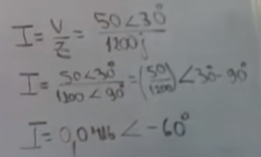 I = V/Z = 50∠30°/1200j
I = 50∠30°/1200∠90° = (50/1200) ∠30°-90°
I = 0,0416 ∠-60°